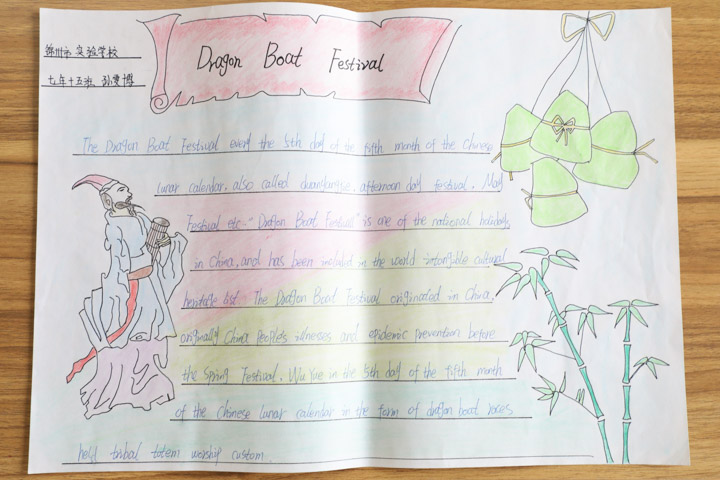 锦州市实验学校
七年十五班
Dragon Boat Festival
The Dragon Boat Festival every the 5th day of the fifth month of the Chinese
lunar calendar, also called duanyangjie, afternoon day festival, May
Festival etc. "Dragon Boat Festival" is one of the national holidays
in China, and has been included in the world intangible cultural
heritage list. The Dragon Boat Festival originated in China,
originally China people's illnesses and epidemic prevention before
the Spring Festival, Wu Yue in the 5th day of the fifth month
of the Chinese lunar calendar in the form of dragon boat races
held tribal totem worship custom.